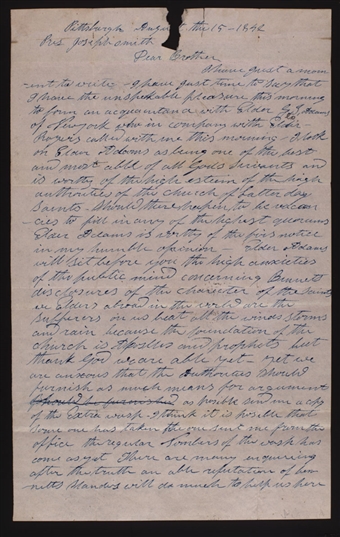 Pittsburgh August the 15 - 1842
Pres Joseph Smith
Dear Brother
I have just a mom
-ent to write - I have just time to say that
I have the unspeakable pleasure this morning
to form an acquaintance with Elder G. J. Adams
of New York now in company with Elder
Rogers call with me this morning - I look
on Elder Adams as being one of the best
and most able of all Gods Servants and
is worthy of the high esteem of the high
authorities of the Church of Latter day
Saints - Should there happen to be vacan
-cies to fill in any of the highest quorums
Elder Adams is worthy of the first notice
in my humble opinion - Elder Adams
will set before you the high anxieties
of the public mind concerning Bennett
disclosures of the character of the Saints
we Elders abroad in the world are the
sufferers on us beat all the winds storms
and rain because the foundation of the
church is Apostles and prophets but
thank God we are able yet yet we
are anxious that the Authorities should
furnish as much means for argument
should be furnished as possible send me a copy
of the Extra wasp I think it is posible that
some one has taken the one sent me from the
office the regular Numbers of the wasp has
come as yet There are many inquering
after the truth an able refutation of ben
netts slanders will do much to help us here